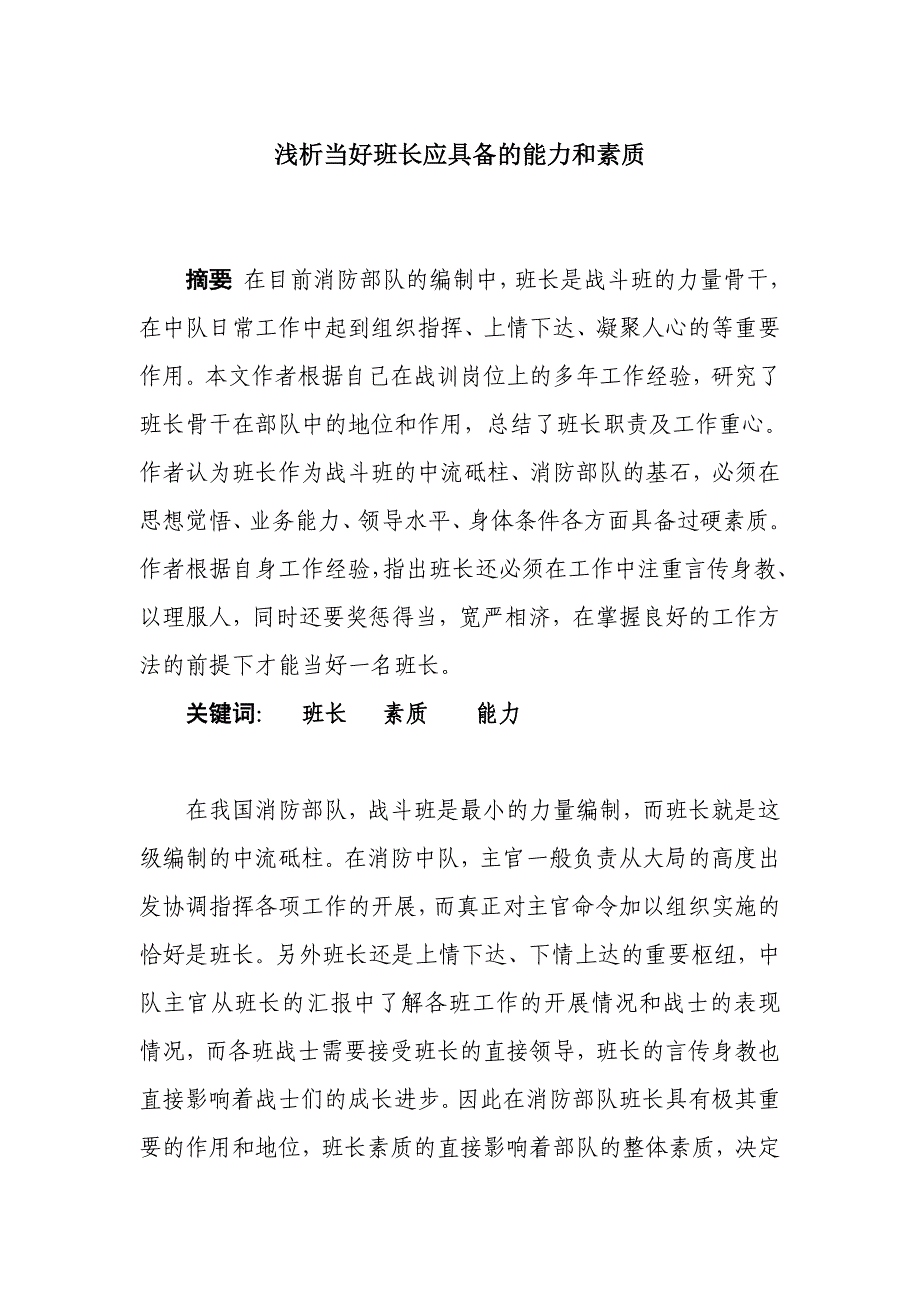 浅析当好班长应具备的能力和素质
摘要 在目前消防部队的编制中，班长是战斗班的力量骨干，
在中队日常工作中起到组织指挥、上情下达、凝聚人心的等重要
作用。本文作者根据自己在战训岗位上的多年工作经验，研究了
班长骨干在部队中的地位和作用，总结了班长职责及工作重心。
作者认为班长作为战斗班的中流砥柱、消防部队的基石，必须在
思想觉悟、业务能力、领导水平、身体条件各方面具备过硬素质。
作者根据自身工作经验，指出班长还必须在工作中注重言传身教、
以理服人，同时还要奖惩得当，宽严相济，在掌握良好的工作方
法的前提下才能当好一名班长。
关键词： 班长 素质 能力
在我国消防部队，战斗班是最小的力量编制，而班长就是这
级编制的中流砥柱。在消防中队，主官一般负责从大局的高度出
发协调指挥各项工作的开展，而真正对主官命令加以组织实施的
恰好是班长。另外班长还是上情下达、下情上达的重要枢纽，中
队主官从班长的汇报中了解各班工作的开展情况和战士的表现
情况，而各班战士需要接受班长的直接领导，班长的言传身教也
直接影响着战士们的成长进步。因此在消防部队班长具有极其重
要的作用和地位，班长素质的直接影响着部队的整体素质，决定